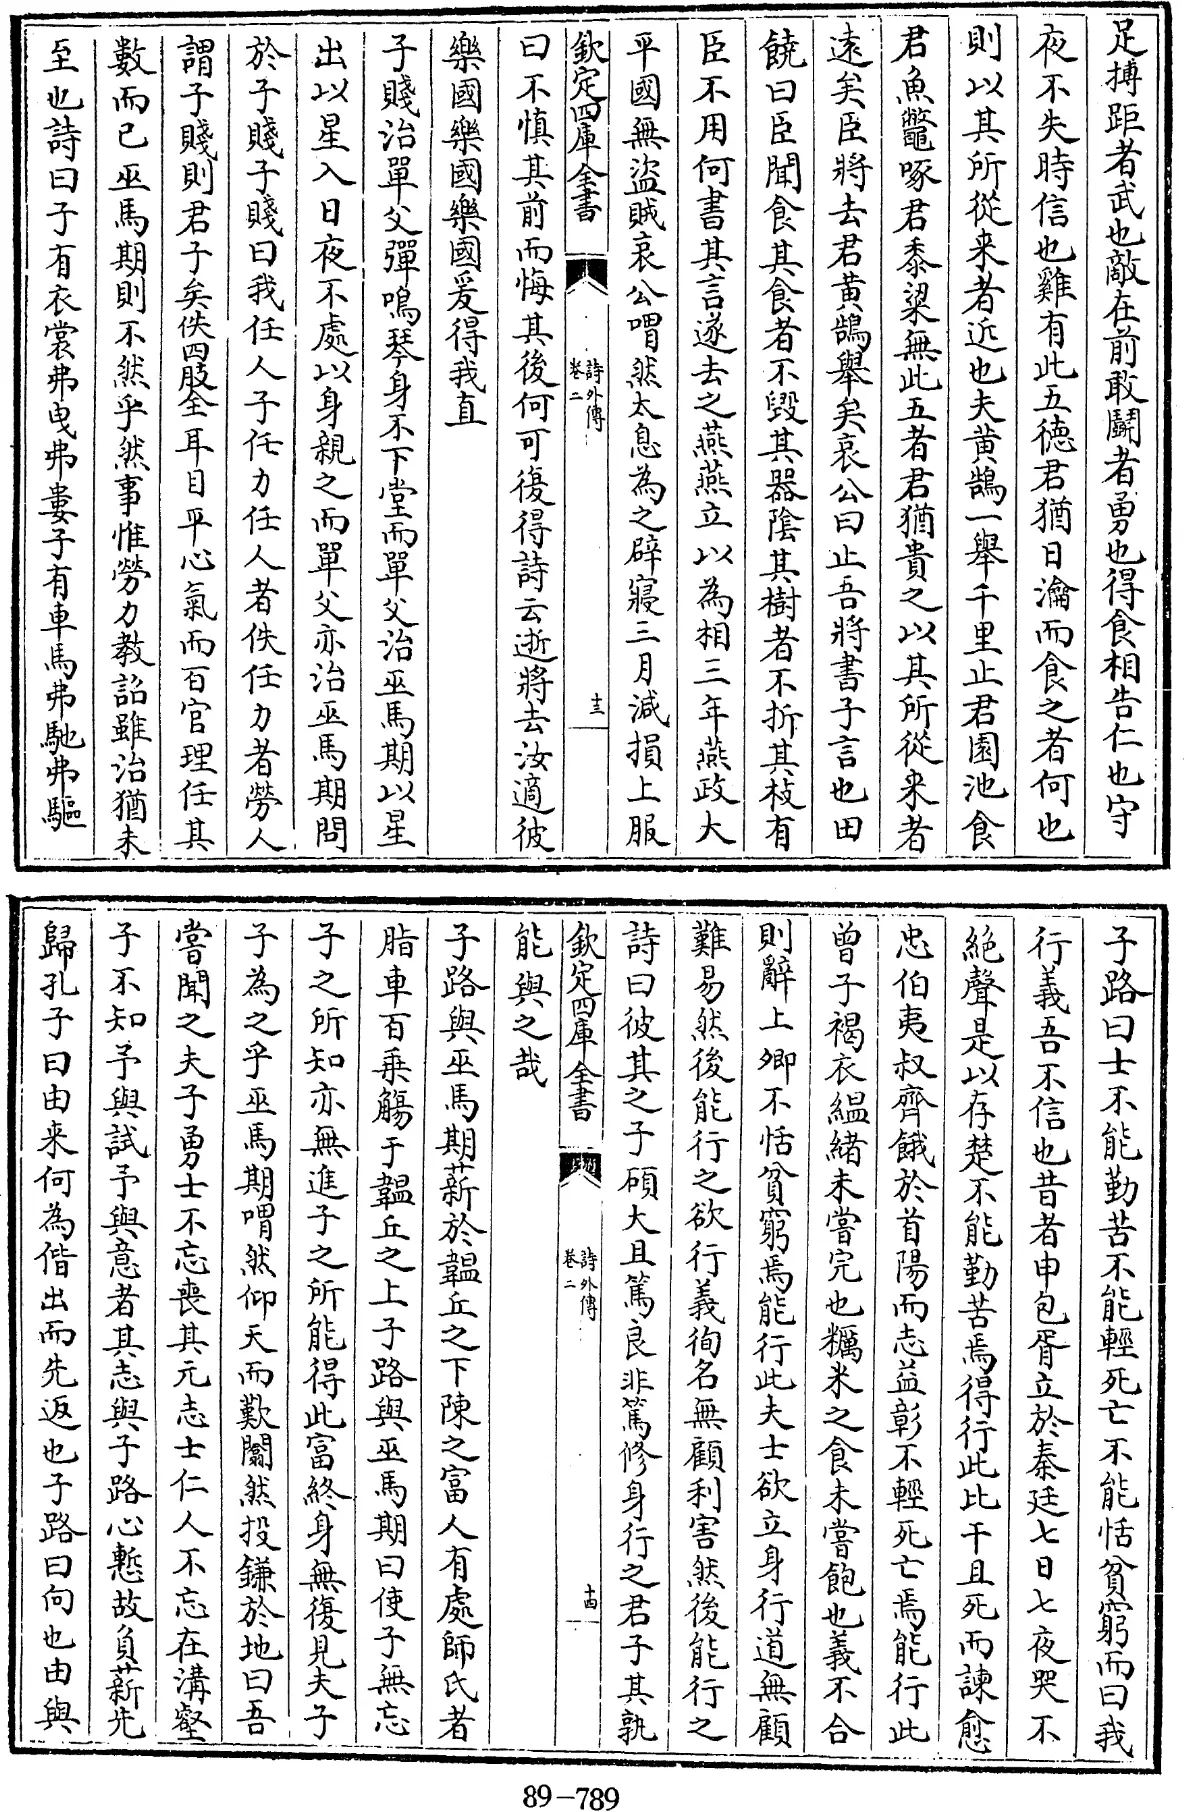 足搏距者武也敵在前敢鬭者勇也得食相告仁也守
夜不失時信也雞有此五德君猶日瀹而食之者何也
則以其所從来者近也夫黄鵠一舉千里止君園池食
君魚鼈啄君黍粱無此五者君猶貴之以其所從来者
遠矣臣將去君黄鵠舉矣哀公曰止吾將書子言也田
饒曰臣聞食其食者不毀其器陰其樹者不折其枝有
臣不用何書其言遂去之燕燕立以為相三年燕政大
平國無盜賊哀公喟然太息為之辟寢三月減損上服
欽定四庫全書
詩外傳
卷二
十三
曰不慎其前而悔其後何可復得詩云逝將去汝適彼
樂國樂國樂國爰得我直
子賤治單父彈鳴琴身不下堂而單父治巫馬期以星
出以星入日夜不處以身親之而單父亦治巫馬期問
於子賤子賤曰我任人子任力任人者佚任力者勞人
謂子賤則君子矣佚四肢全耳目平心氣而百官理任其
數而已巫馬期則不然乎然事惟勞力教詔雖治猶未
至也詩曰子有衣裳弗曳弗婁子有車馬弗馳弗驅
子路曰士不能勤苦不能輕死亡不能恬貧窮而曰我
行義吾不信也昔者申包胥立於秦廷七日七夜哭不
絶聲是以存楚不能勤苦焉得行此比干且死而諫愈
忠伯夷叔齊餓於首陽而志益彰不輕死亡焉能行此
曾子褐衣緼緒未嘗完也糲米之食未嘗飽也義不合
則辭上卿不恬貧窮焉能行此夫士欲立身行道無顧
難易然後能行之欲行義徇名無顧利害然後能行之
詩曰彼其之子碩大且篤良非篤修身行之君子其孰
欽定四庫全書
詩外傳
卷二
十四
能與之哉
子路與巫馬期薪於韞丘之下陳之富人有處師氏者
脂車百乗觴于韞丘之上子路與巫馬期曰使子無忘
子之所知亦無進子之所能得此富終身無復見夫子
子為之乎巫馬期喟然仰天而歎闟然投鎌於地曰吾
嘗聞之夫子勇士不忘喪其元志士仁人不忘在溝壑
子不知予與試予與意者其志與子路心慙故負薪先
歸孔子曰由来何為偕出而先返也子路曰向也由與
89-789